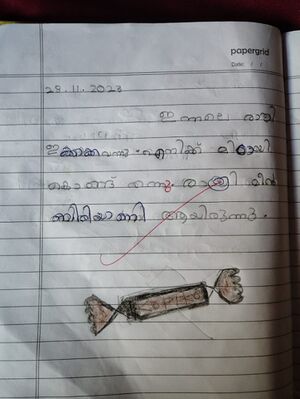 papergrid
Date: / /
28.11.2023
ഇന്നലെ രാത്രി
ഇക്കാക്ക വന്നു. എനിക്ക് മിഠായി
കൊണ്ട് തന്നു. രാത്രി മീൻ
ബിരിയാണി ആയിരുന്നു.